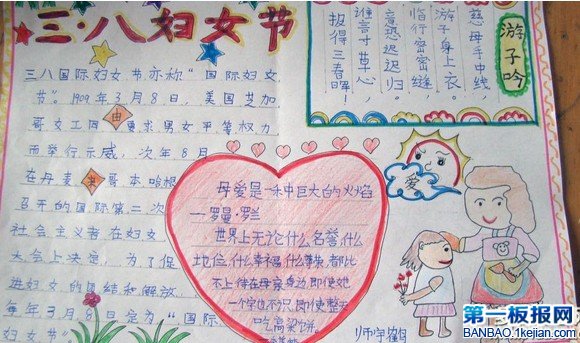 三·八妇女节
三八国际妇女节亦称“国际妇女
节”。1909年3月8日,美国芝加
哥女工因由要求男女平等权力
而举行示威,次年8月
在丹麦来哥本哈根
召开的国际第二次
社会主义者在妇女
大会上决定,为了促
进妇女的团结和解放
每年3月8日定为“国际
妇女节”
母爱是一种巨大的火焰
—罗曼·罗兰
世界上无论什么名誉,什么
地位,什么幸福,什么尊荣,都比
不上待在母亲身边,即使她
一个字也不识,即使整天
吃高粱饼。
游子吟
慈母手中线,
游子身上衣。
临行密密缝,
意恐迟迟归。
谁言寸草心,
报得三春晖!
爱
第一板报网
BANBAO.1kejian.com